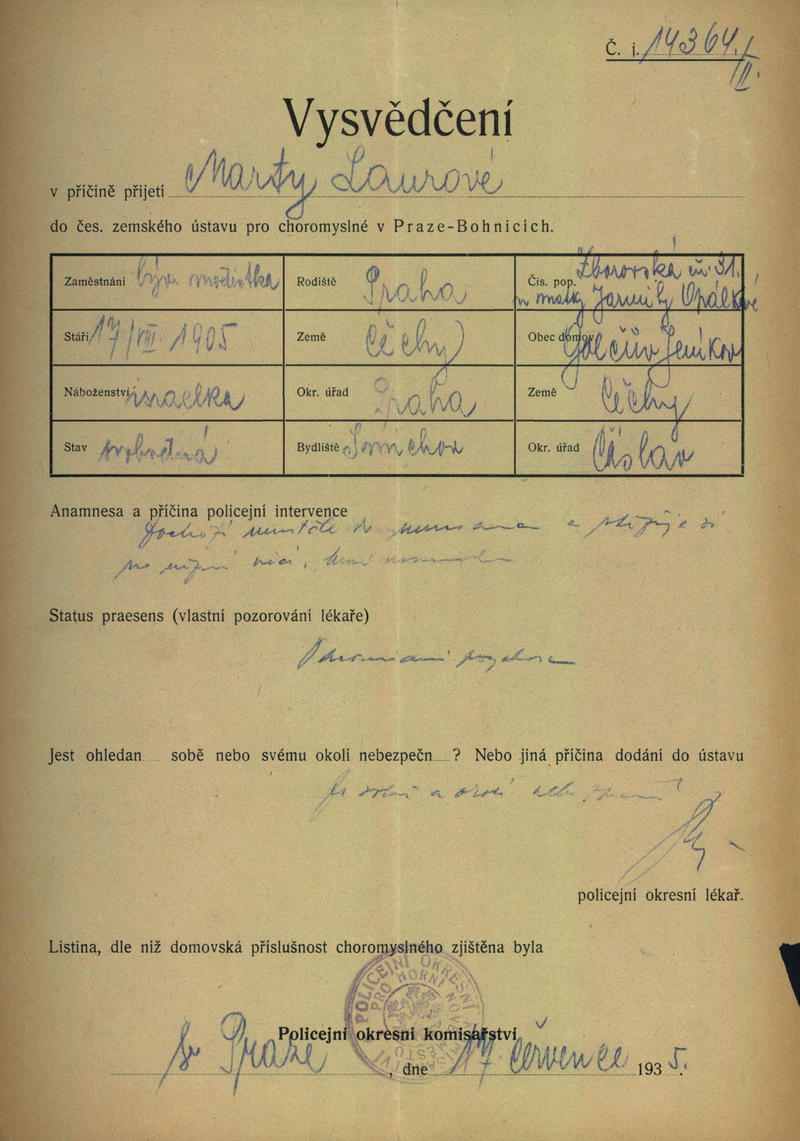 Č. j. 14364/II.
Vysvědčení
v příčině přijetí Marty Laurové
do čes. zemského ústavu pro choromyslné v Praze-Bohnicích.
Zaměstnání býv. modistka
Rodiště Praha
Čís. pop. Zborovská č. 31,
u matky Jarmily Opálkové
Stáří 17/VII. 1905
Země Čechy
Obec domov. Golčův Jeníkov
Náboženství israelka
Okr. úřad Praha
Země Čechy
Stav svobodná
Bydliště Smíchov
Okr. úřad Čáslav
Anamnesa a příčina policejní intervence
a stěžuje si
Status praesens (vlastní pozorování lékaře)
Jest ohledan sobě nebo svému okolí nebezpečn ? Nebo jiná příčina dodání do ústavu
Je sobě a okolí nebezpečna
policejní okresní lékař.
Listina, dle níž domovská příslušnost choromyslného zjištěna byla
POLICEJNÍ OKRESNÍ
PRO HORNÍ NOVÉ
Policejní okresní komisařství
v Praze, dne 17 července 1935.